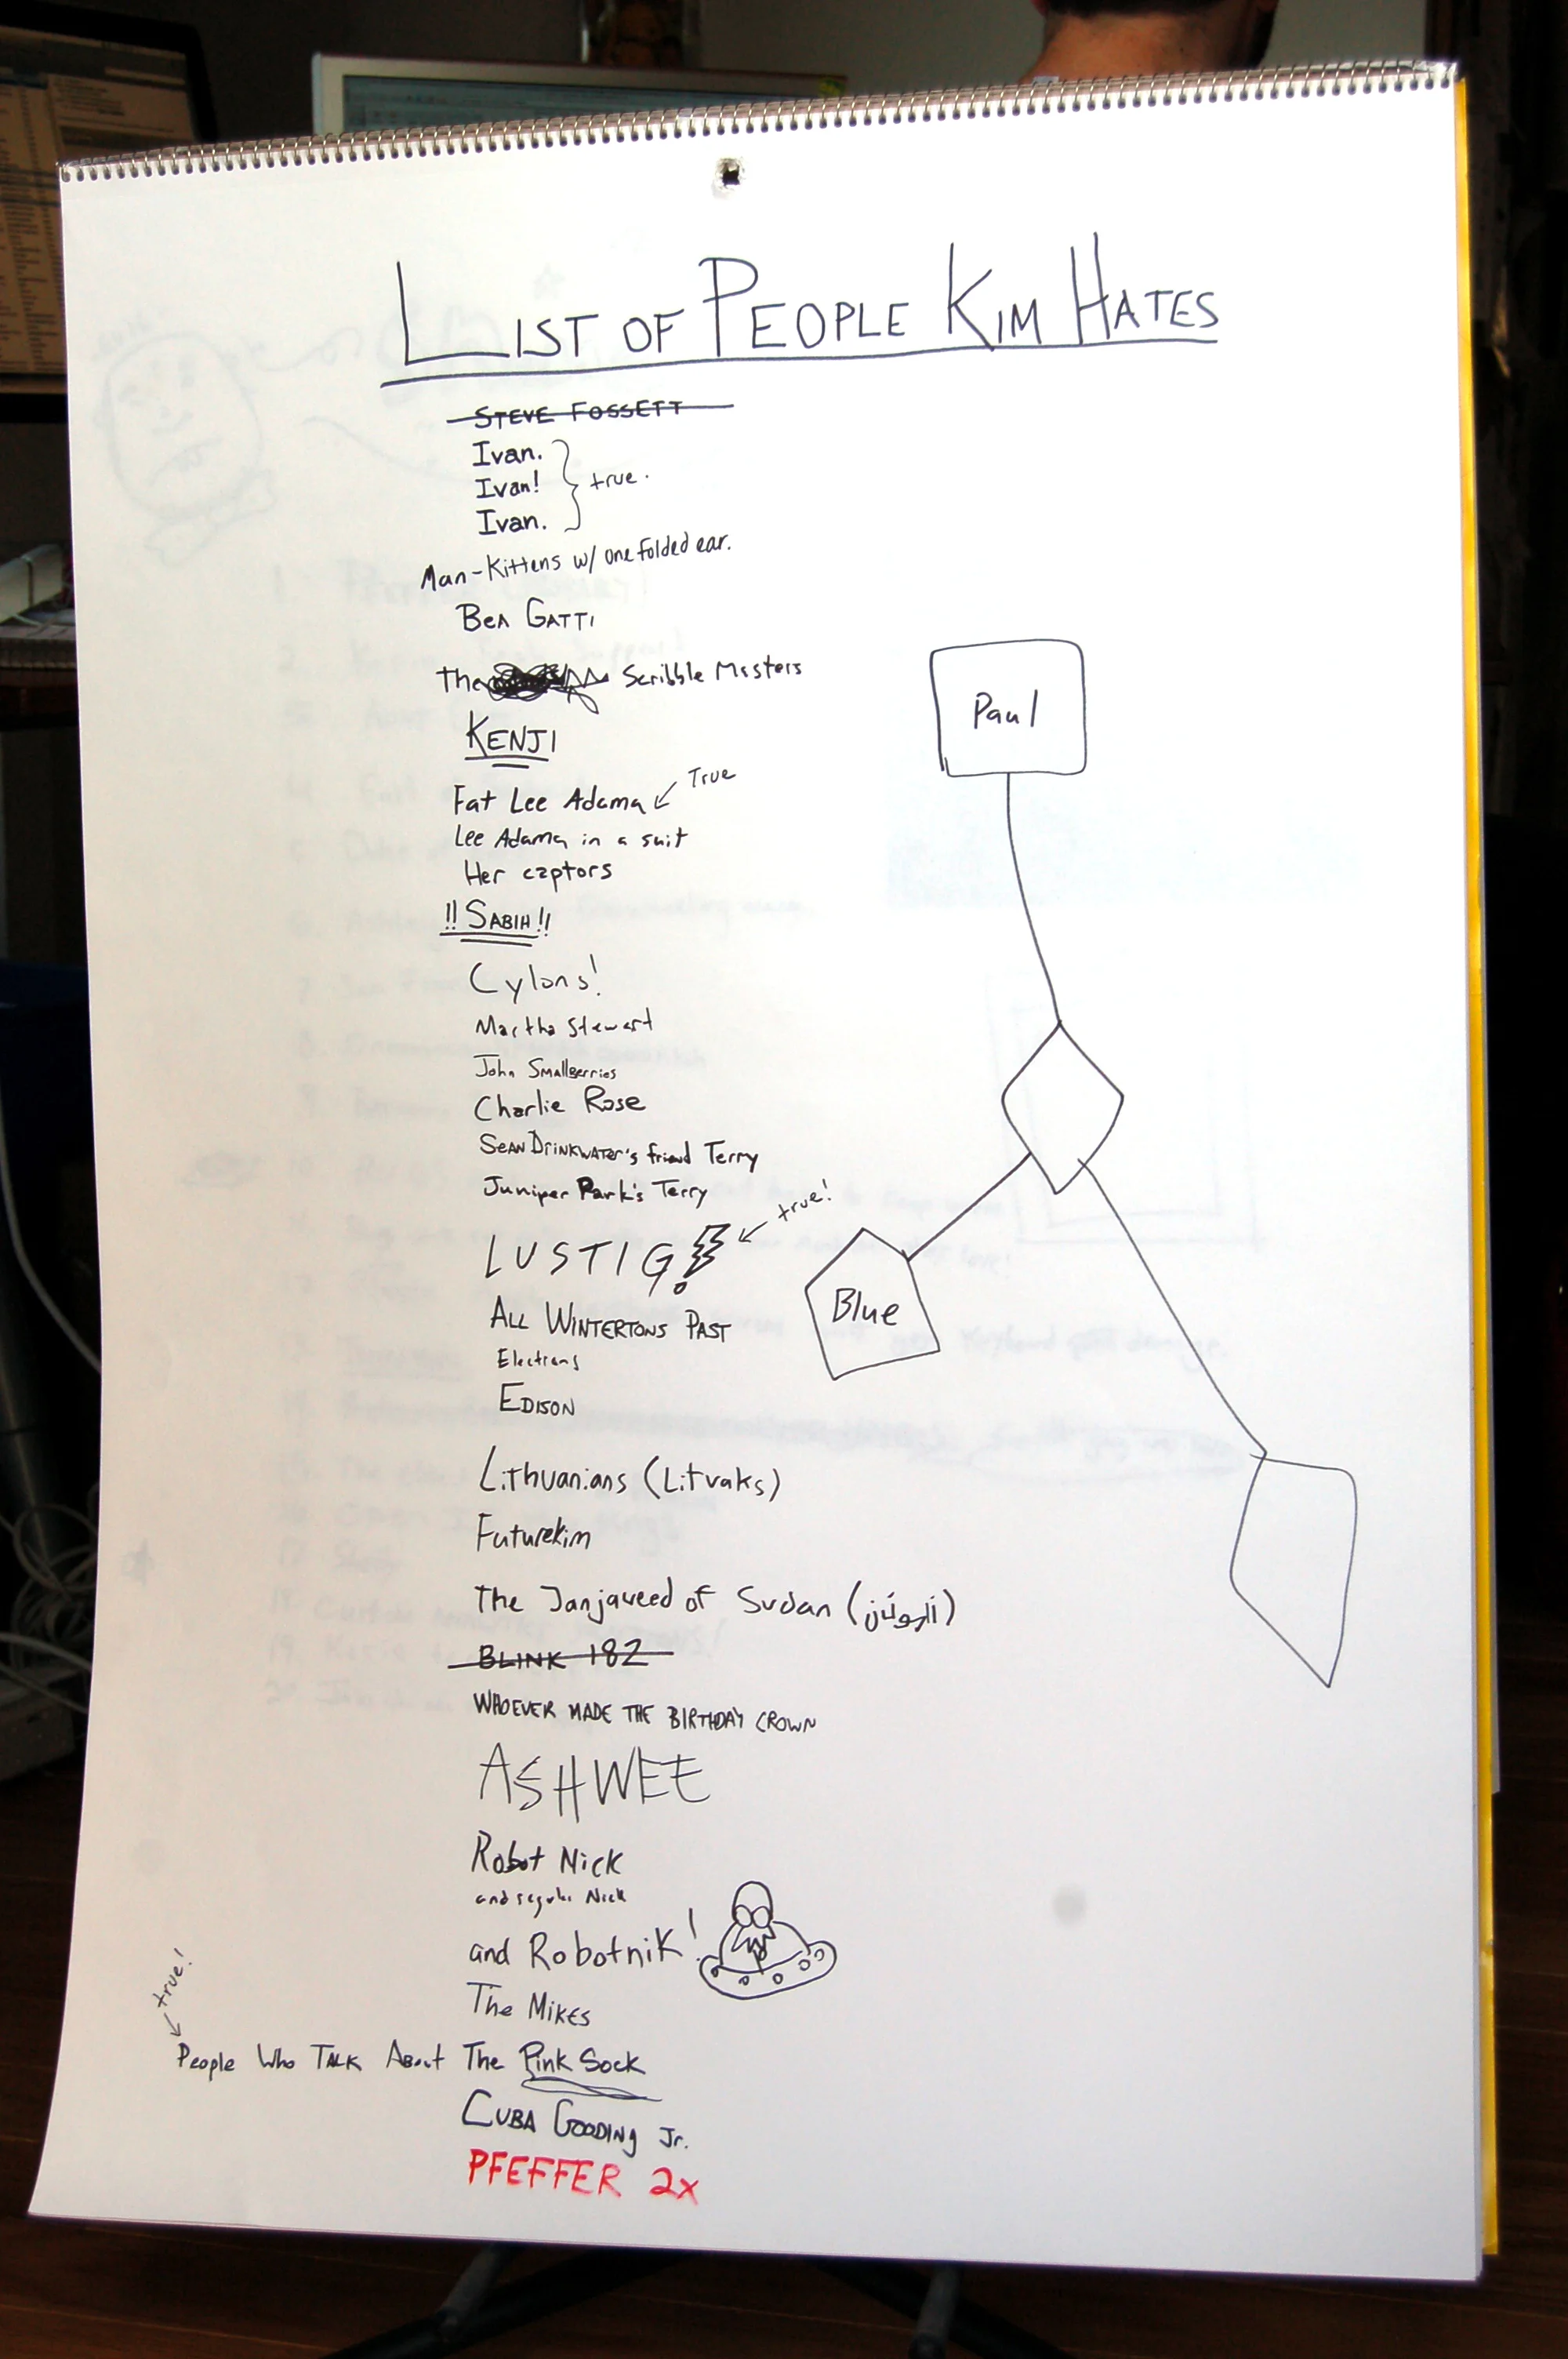 LIST OF PEOPLE KIM HATES
STEVE FOSSETT
Ivan.
Ivan!
Ivan.
true.
Man-Kittens w/ one folded ear.
BEA GATTI
The Scribble Masters
KENJI
True
Fat Lee Adama
Lee Adama in a suit
Her captors
!!SABIH!!
Cylons!
Martha Stewart
John Smallberries
Charlie Rose
SEAN DRINKWATER's friend Terry
Juniper Park's Terry
true!
LUSTIG!
ALL WINTERTONS PAST
Elections
EDISON
Lithuanians (Litvaks)
Futurekim
The Janjaweed of Sudan
BLINK 182
WHOEVER MADE THE BIRTHDAY CROWN
ASHWEE
Robot Nick
and regular Nick
and Robotnik!
The Mikes
true!
People Who TALK About The Pink Sock
CUBA GOODING Jr.
PFEFFER 2x
Paul
Blue